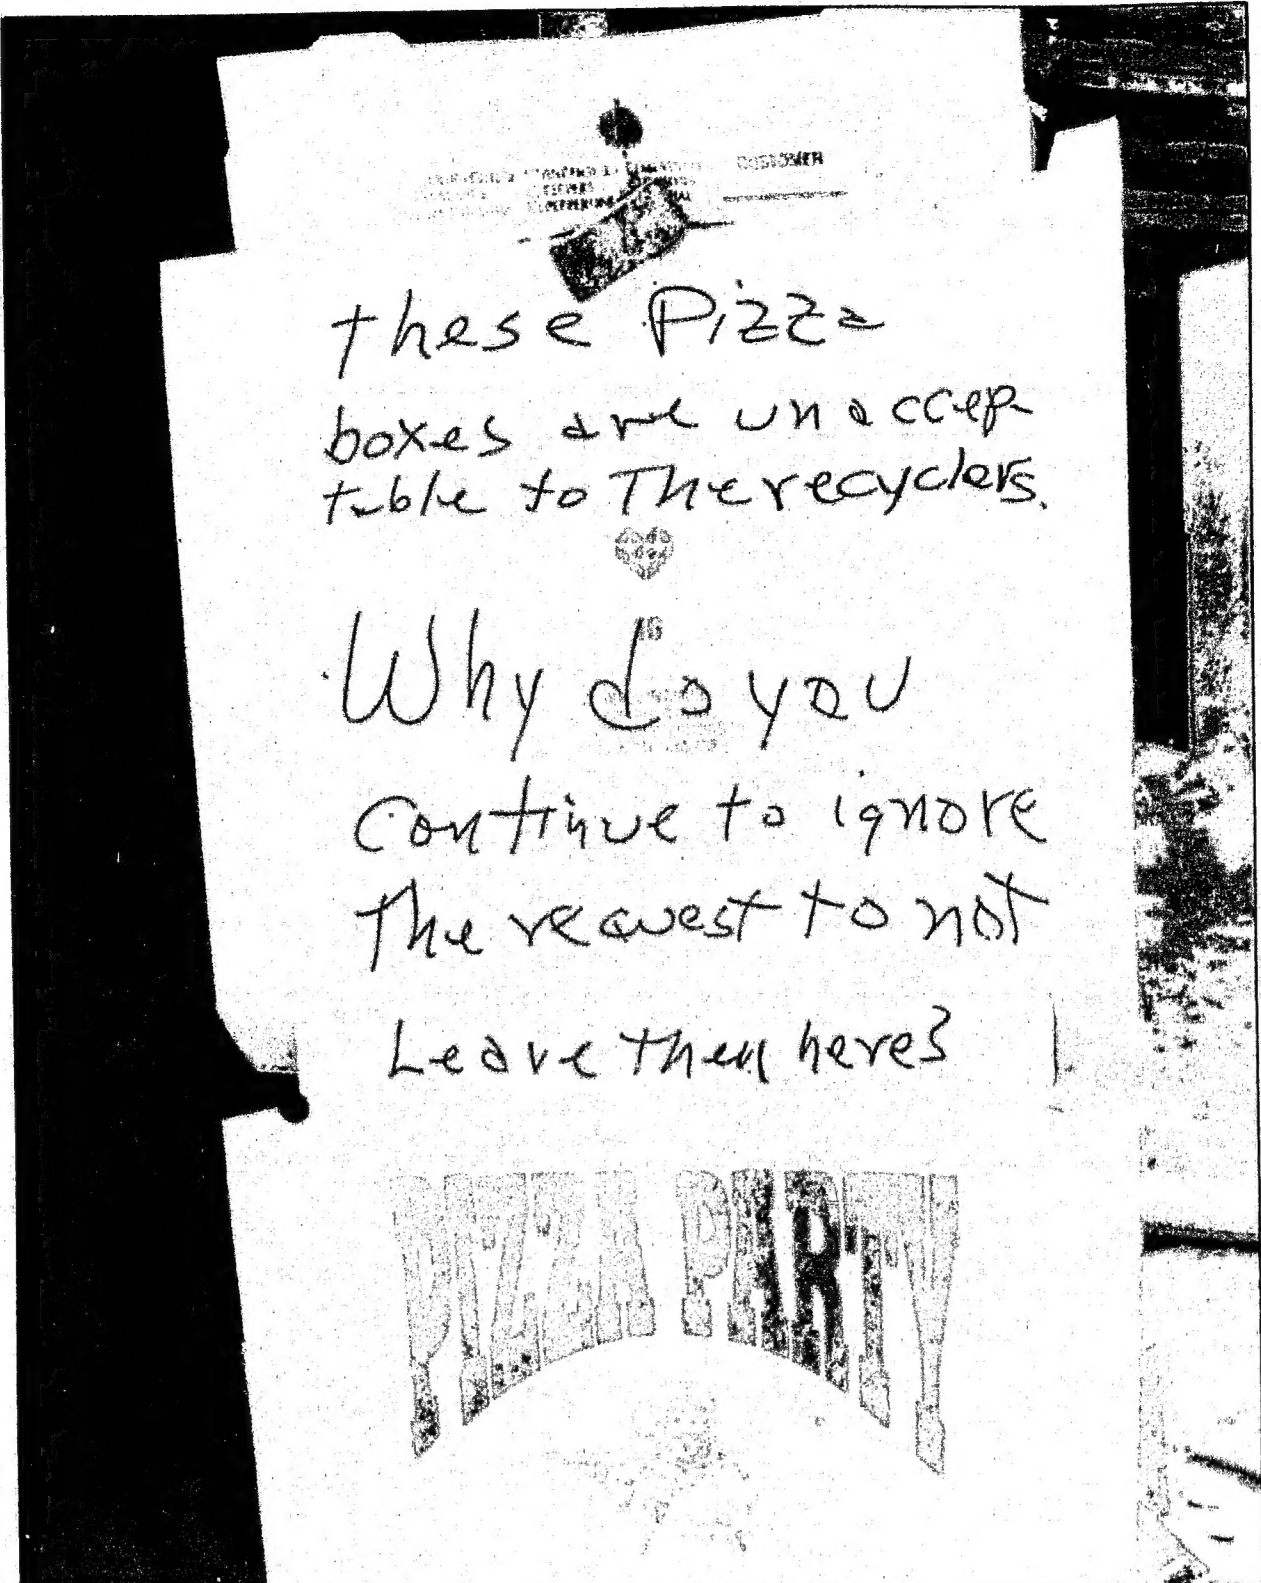 CUSTOMER
these Pizza
boxes are unaccep-
table to The recyclers.
Why do you
continue to ignore
The request to not
Leave them here?
PIZZA PARTY